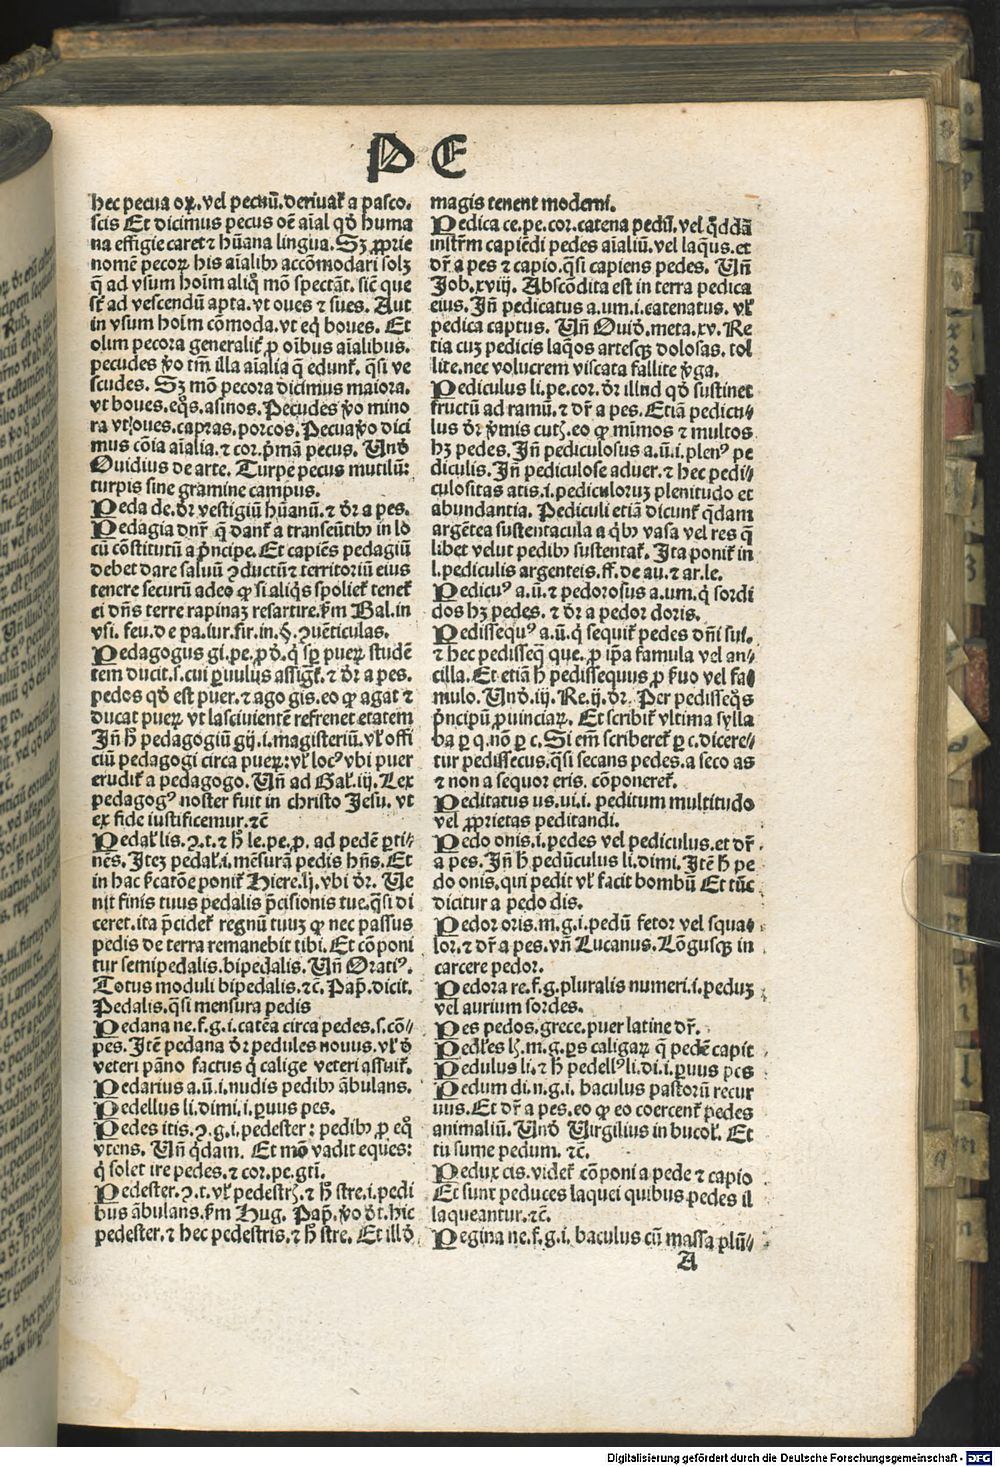 PE
hec pecua oꝝ. vel pecuū. deriuat᷑ a pasco.
scis Et dicimus pecus oē aīal qð huma
na effigie caret ⁊ hūana lingua. Sꝫ ꝓprie
nomē pecoꝝ his aīalibꝰ accōmodari solꝫ
q̄ ad vsum hoīm aliq̊ mō spectāt. sic̄ que
st̄ ad vescendū apta. vt oues ⁊ sues. Aut
in vsum hoīm cōmoda. vt eq̄ boues. Et
olim pecora generalit᷑ ꝓ oībus aīalibus.
pecudes ꝟo tm̄ illa aīalia q̄ edunt᷑. q̄si ve
scudes. Sꝫ mō pecora dicimus maiora.
vt boues. eq̊s. asinos. Pecudes ꝟo mino
ra vt oues. capras. porcos. Pecua ꝟo dici
mus cōia aīalia. ⁊ cor. p̄mam pecus. Unð
Ouidius de arte. Turpe pecus mutilū:
turpis sine gramine campus.
Peda de. ðr vestigiū hūanū. ⁊ ðr a pes.
Pedagia dnr̄ q̄ dant᷑ a transeūtibꝰ in lo
cū cōstitutū a p̄ncipe. Et capiēs pedagiū
debet dare saluū ↄductū ⁊ territoriū eius
tenere securū adeo ꝙ si aliq̊s spoliet᷑ tenet᷑
ei dn̄s terre rapinaꝫ resartire. ẜm Bal. in
vsi. feu. de pa. iur. fir. in. §. ↄuēticulas.
Pedagogus gi. pe. ꝓð. q̇ sꝑ pueꝝ studē
tem ducit. s. cui ꝑuulus assigt᷑. ⁊ ðr a pes.
pedos qð est puer. ⁊ ago gis. eo ꝙ agat ⁊
ducat pueꝝ vt lasciuientē refrenet etatem
Jn̄ h̄ pedagogiū gij. i. magisteriū. vƚ offi
ciū pedagogi circa pueꝝ: vƚ locꝰ vbi puer
erudit᷑ a pedagogo. Un̄ ad Gaƚ. iij. Lex
pedagogꝰ noster fuit in christo Jesu. vt
ex fide iustificemur. ⁊c̄
Pedaƚlis. ↄ. t. ⁊ h̄ le. pe. ꝓ. ad pedē ꝑti-
nēs. Iteꝫ pedaƚ. i. mēsurā pedis hn̄s. Et
in hac ẜcatōe ponit᷑ Hiere. lj. vbi ðr. Ve
nit finis tuus pedalis p̄cisionis tue. q̄si di
ceret. ita p̄cidet᷑ regnū tuuꝫ ꝙ nec passus
pedis de terra remanebit tibi. Et cōponi
tur semipedalis. bipedalis. Un̄ Oratiꝰ.
Totus moduli bipedalis. ⁊c̄. Pap̄. dicit.
Pedalis. q̄si mensura pedis
Pedana ne. f. g. i. catēa circa pedes. s. cō-
pes. Itē pedana ðr pedules nouus. vƚ ð
veteri pāno factus q̇ calige veteri assuit᷑.
Pedarius a. ū. i. nudis pedibꝰ ābulans.
Pedellus li. dimi. i. ꝑuus pes.
Pedes itis. ↄ. g. i. pedester: pedibꝰ ꝓ eq̊
vtens. Un̄ q̇dam. Et mō vadit eques:
q̇ solet ire pedes. ⁊ cor. pe. gti.
Pedester. ↄ. t. vƚ pedestrꝫ. ⁊ h̄ stre. i. pedi
bus ābulans. ẜm Hug. Pap̄. ꝟo ðt. hic
pedester. ⁊ hec pedestris. ⁊ h̄ stre. Et illð
magis tenent moderni.
Pedica ce. pe. cor. catena pedū. vel q̇ddā
instr̄m capiēdi pedes aīaliū. vel laq̇us. et
ðr̄ a pes ⁊ capio. q̄si capiens pedes. Un̄
Job. xviij. Abscōdita est in terra pedica
eius. Jn̄ pedicatus a. um. i. catenatus. vƚ
pedica captus. Un̄ Ouið. meta. xv. Re
tia cuꝫ pedicis laq̊os artesqꝫ dolosas. tol
lite. nec volucrem viscata fallite ꝟga.
Pediculus li. pe. cor. ðr illud qð sustinet
fructū ad ramū. ⁊ ðr̄ a pes. Etiā pedicu-
lus ðr ꝟmis cutꝫ. eo ꝙ mīmos ⁊ multos
hꝫ pedes. Jn̄ pediculosus a. ū. i. plenꝰ pe
diculis. Jn̄ pediculose aduer. ⁊ hec pedi-
culositas atis. i. pediculoruꝫ plenitudo et
abundantia. Pediculi etiā dicunt᷑ q̄dam
argētea sustentacula a q̇bꝰ vasa vel res q̄
libet velut pedibꝰ sustentat᷑. Ita ponit᷑ in
l. pediculis argenteis. ff. de au. ⁊ ar. le.
Pedicuꝰ a. ū. ⁊ pedorosus a. um. q̇ sordi
dos hꝫ pedes. ⁊ ðr a pedor doris.
Pedissequꝰ a. ū. q̇ sequit᷑ pedes dn̄i sui.
⁊ hec pedisseq̄ que. ꝓ ip̄a famula vel an-
cilla. Et etiā h̄ pedissequus ꝓ ẜuo vel fa-
mulo. Unð. iij. Re. ij. ðr. Per pedisseq̊s
p̄ncipū ꝓuinciaꝝ. Et scribit᷑ vltima sylla
ba ꝑ q. nō ꝑ c. Si em̄ scriberet᷑ ꝑ c. dicere-
tur pedissecus. q̄si secans pedes. a seco as
⁊ non a sequor eris. cōponeret᷑.
Peditatus us. ui. i. peditum multitudo
vel ꝓprietas peditandi.
Pedo onis. i. pedes vel pediculus. et ðr̄.
a pes. Jn̄ h̄ pedūculus li. dimi. Itē h̄ pe
do onis. qui pedit vƚ facit bombū Et tūc
dicitur a pedo dis.
Pedor oris. m. g. i. pedū fetor vel squa-
lor. ⁊ ðr̄ a pes. vn̄ Lucanus. Lōgusqꝫ in
carcere pedor.
Pedora re. f. g. pluralis numeri. i. peduꝫ
vel aurium sordes.
Pes pedos. grece. puer latine ðr̄.
Pedƚes lꝫ. m. g. ꝑs caligaꝝ q̄ pedē capit
Pedulus li. ⁊ h̄ pedellꝰ li. di. i. ꝑuus pes
Pedum di. n. g. i. baculus pastorū recur
uus. Et ðr̄ a pes. eo ꝙ eo coercent᷑ pedes
animaliū. Unð Virgilius in bucoƚ. Et
tū sume pedum. ⁊c̄.
Pedux cis. videt᷑ cōponi a pede ⁊ capio
Et sunt peduces laquei quibus pedes il
laqueantur. ⁊c̄.
Pegina ne. f. g. i. baculus cū massa plū-
A
Digitalisierung gefördert durch die Deutsche Forschungsgemeinschaft - DFG